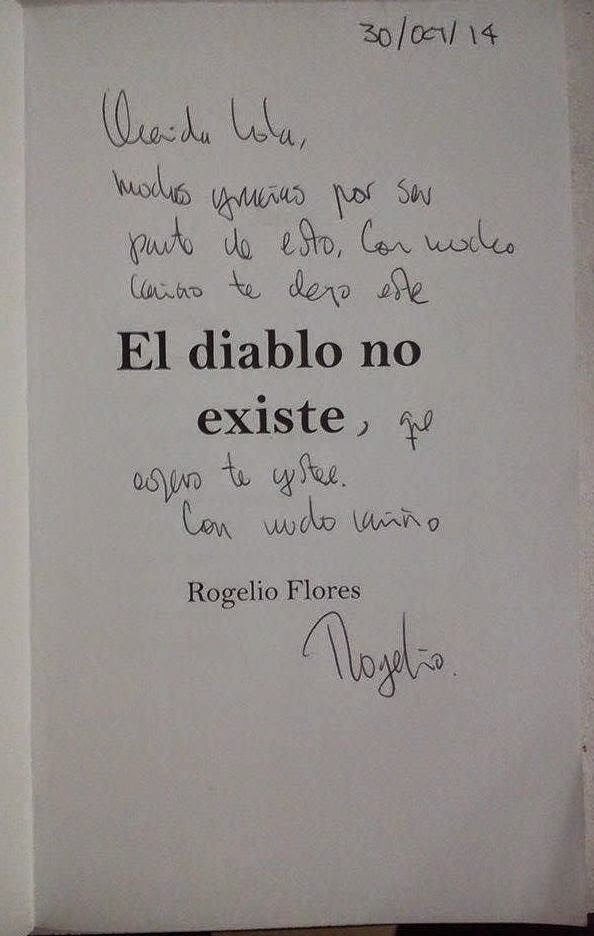 30/oct/14
Querida Lola,
muchas gracias por ser
parte de esto. Con mucho
cariño te dejo este
El diablo no
existe, que
espero te guste.
Con mucho cariño
Rogelio Flores
Rogelio.